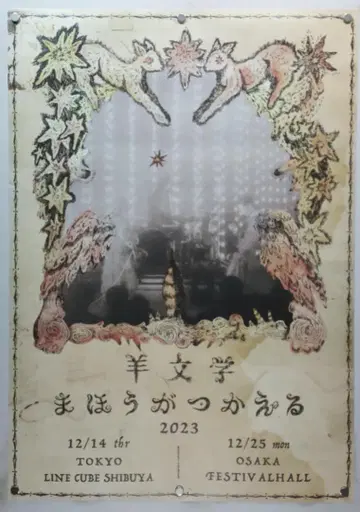 羊文学
まほうがつかえる
2023
12/14 thr
TOKYO
LINE CUBE SHIBUYA
12/25 mon
OSAKA
FESTIVALHALL